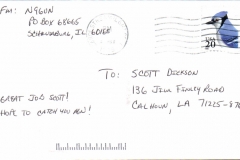 Fm: NYGUN
PO BOX 68665
SCHAUMBURG, IL 60168
USA
20
TO: SCOTT DICKSON
136 JILL FINLEY ROAD
CALHOUN, LA 71225-
GREAT JOB SCOTT!
HOPE TO CATCH YOU AGN!